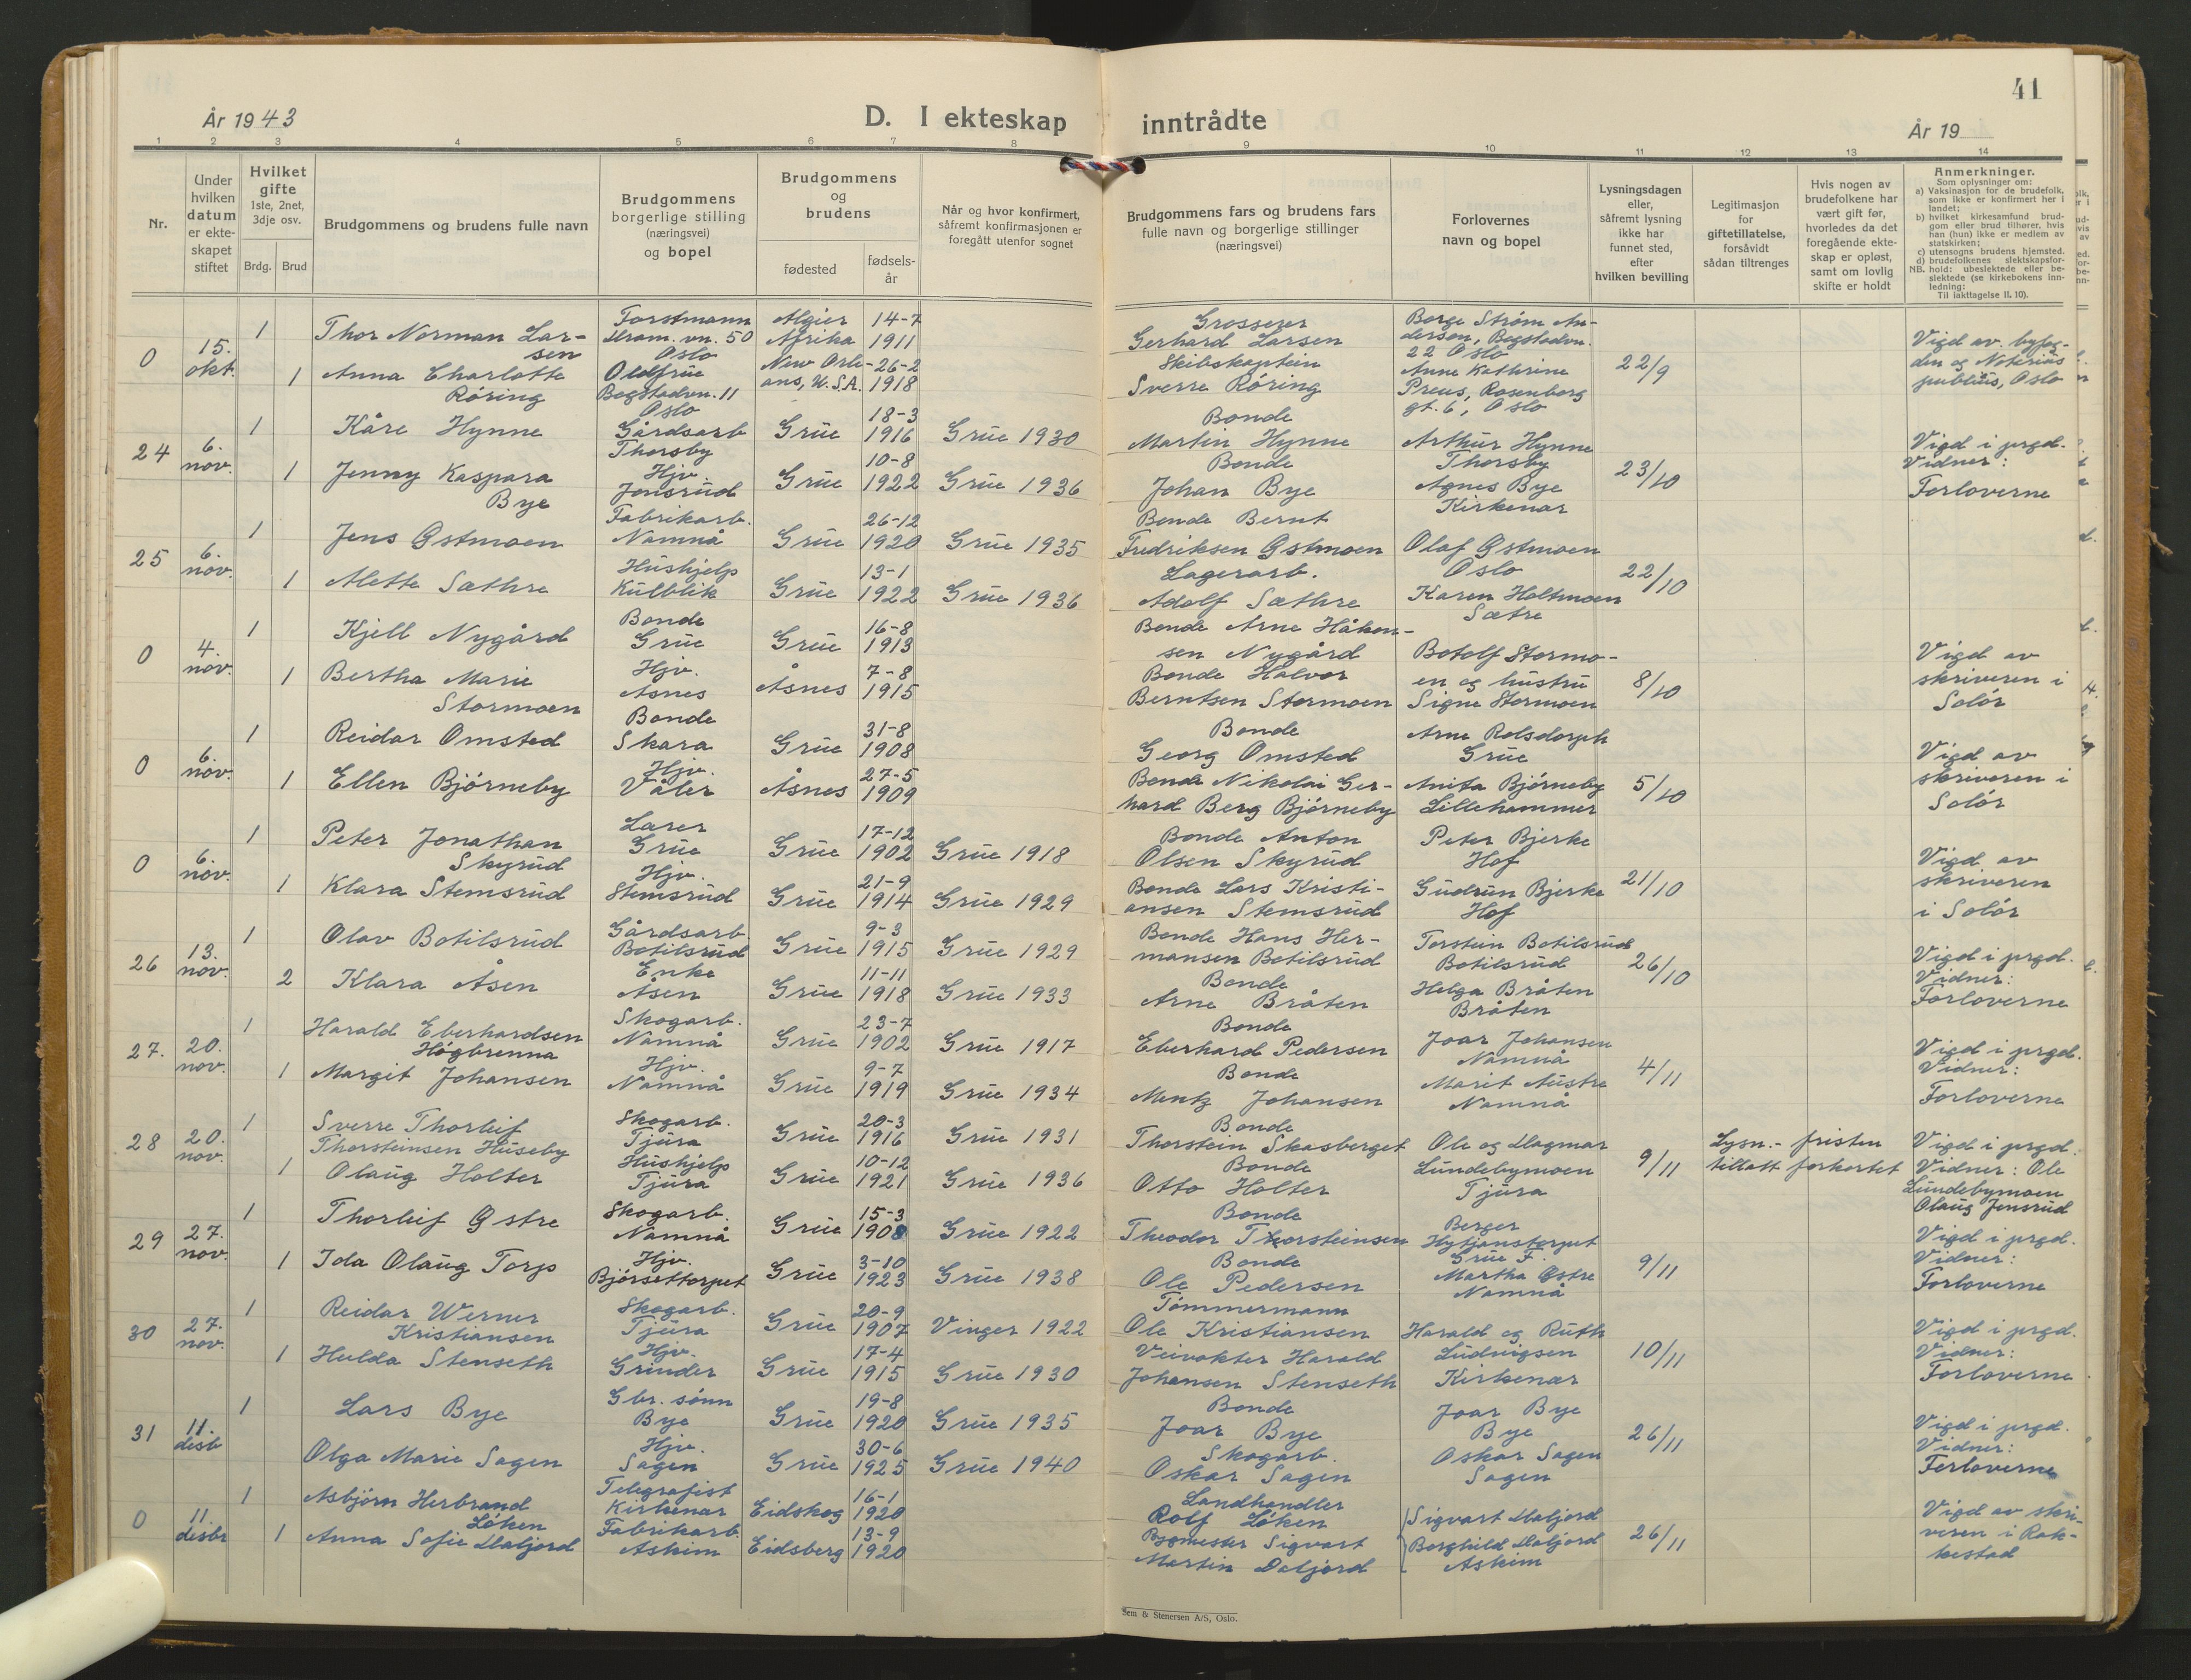 41
År 1943
D. I ekteskap inntrådte
År 19
1 2 3 4 5 6 7 8 9 10 11 12 13 14
Nr.
Under hvilken datum er ekteskapet stiftet
Hvilket gifte 1ste, 2net, 3dje osv.
Brdg. Brud
Brudgommens og brudens fulle navn
Brudgommens borgerlige stilling (næringsvei) og bopel
Brudgommens og brudens
fødested
fødselsår
Når og hvor konfirmert, såfremt konfirmasjonen er foregått utenfor sognet
Brudgommens fars og brudens fars fulle navn og borgerlige stillinger (næringsvei)
Forlovernes navn og bopel
Lysningsdagen eller, såfremt lysning ikke har funnet sted, efter hvilken bevilling
Legitimasjon for giftetillatelse, forsåvidt sådan tiltrenges
Hvis nogen av brudefolkene har vært gift før, hvorledes da det foregående ekteskap er opløst, samt om lovlig skifte er holdt
Anmerkninger.
Som oplysninger om:
a) Vaksinasjon for de brudefolk, som ikke er konfirmert her i landet;
b) hvilket kirkesamfund brudgom eller brud tilhører, hvis han (hun) ikke er medlem av statskirken;
c) utensogns brudens hjemsted.
d) brudefolkenes slektskapsforhold: ubeslektede eller beslektede (se kirkebokens innledning:
NB.
Til iakttagelse II. 10).
0 15. okt. 1 Thor Norman Larsen Forstmann Stram. vn. 50 Oslo Algier Afrika 14-7 1911 Grosserer Gerhard Larsen Borge Strøm Anderson, Bogstadvn. 22 Oslo 22/9 Vigd av byfogden og Notarius publicus, Oslo
1 Anna Charlotte Röring Oldfrue Bogstadvn. 11 Oslo New Orleans, U.S.A. 26-2 1918 Skibskaptein Sverre Röring Anne Kathrine Preus, Rosenborg gt. 6, Oslo
24 6. nov. 1 Kåre Hynne Gårdsarb Thorsby Grue 18-3 1916 Grue 1930 Bonde Martin Hynne Arthur Hynne Thorsby 23/10 Vigd i prgd. Vidner: Forloverne
1 Jenny Kaspara Bye Hjv. Jonsrud Grue 10-8 1922 Grue 1936 Bonde Johan Bye Agnes Bye Kirkenær
25 6. nov. 1 Jens Østmoen Fabrikarb. Namnå Grue 26-12 1920 Grue 1935 Bonde Bernt Fredriksen Østmoen Olaf Østmoen Oslo 22/10
1 Alette Sæthre Hushjelp Kulblik Grue 13-1 1922 Grue 1936 Lagerarb. Adolf Sæthre Karen Holtmoen Sætre
0 4. nov. 1 Kjell Nygård Bonde Grue Grue 16-8 1913 Bonde Arne Håkonsen Nygård Botolf Stormoen og hustru Signe Stormoen 8/10 Vigd av skriveren i Solør
1 Bertha Marie Stormoen Hjv. Åsnes Åsnes 7-8 1915 Bonde Halvor Berntsen Stormoen
0 6. nov. 1 Reidar Omsted Bonde Skara Grue 31-8 1908 Bonde Georg Omsted Arne Rolsdorph Grue 5/10 Vigd av skriveren i Solør
1 Ellen Bjørneby Hjv. Våler Åsnes 27-5 1909 Bonde Nikolai Gerhard Berg Bjørneby Anita Bjørneby Lillehammer
0 6. nov. 1 Peter Jonathan Skyrud Lærer Grue Grue 17-12 1902 Grue 1918 Bonde Anton Olsen Skyrud Peter Bjerke Hof 21/10 Vigd av skriveren i Solør
1 Klara Stemsrud Hjv. Stemsrud Grue 21-9 1914 Grue 1929 Bonde Lars Kristiansen Stemsrud Gudrun Bjerke Hof
26 13. nov. 1 Olav Botilsrud Gårdsarb. Botilsrud Grue 9-3 1915 Grue 1929 Bonde Hans Hermansen Botilsrud Torstein Botilsrud Botilsrud 26/10 Vigd i prgd. Vidner: Forloverne
2 Klara Åsen Enke Åsen Grue 11-11 1918 Grue 1933 Bonde Arne Bråten Helga Bråten Bråten
27. 20. nov. 1 Harald Eberhardsen Høgbrenna Skogarb. Namnå Grue 23-7 1902 Grue 1917 Bonde Eberhard Pedersen Joar Johansen Namnå 4/11 Vigd i prgd. Vidner: Forloverne
1 Margit Johansen Hjv. Namnå Grue 9-7 1919 Grue 1934 Bonde Mentz Johansen Marit Austre Namnå
28 20. nov. 1 Sverre Thorleif Thorsteinsen Huseby Skogarb. Tjura Grue 20-3 1916 Grue 1931 Bonde Thorstein Skasberget Ole og Dagmar Lundebymoen Tjura 9/11 Lysn.-fristen tillatt forkortet Vigd i prgd. Vidner: Ole Lundebymoen Olaug Jensrud
1 Olaug Holter Hushjelp Tjura Grue 10-12 1921 Grue 1936 Bonde Otto Holter
29 27. nov. 1 Thorleif Østre Skogarb. Namnå Grue 15-3 1908 Grue 1922 Bonde Theodor Thorsteinsen Berger Hytjanstorpet Grue F. 9/11 Vigd i prgd. Vidner: Forloverne
1 Ida Olaug Torp Hjv. Bjørsettorpet Grue 3-10 1923 Grue 1938 Bonde Ole Pedersen Martha Østre Namnå
30 27. nov. 1 Reidar Werner Kristiansen Skogarb. Tjura Grue 20-9 1907 Vinger 1922 Tømmermann Ole Kristiansen Harald og Ruth Ludvigsen Kirkenær 10/11 Vigd i prgd. Vidner: Forloverne
1 Hulda Stenseth Hjv. Grinder Grue 17-4 1915 Grue 1930 Veivokter Harald Johansen Stenseth
31 11. desb 1 Lars Bye Gbr. sønn Bye Grue 19-8 1920 Grue 1935 Bonde Joar Bye Joar Bye Bye 26/11 Vigd i prgd. Vidner: Forloverne
Olga Marie Sagen Hjv. Sagen Grue 30-6 1925 Grue 1940 Skogarb. Oskar Sagen Oskar Sagen Sagen
0 11. desbr 1 Asbjørn Herbrand Løken Telegrafist Kirkenær Eidskog 16-1 1920 Landhandler Rolf Løken Sigvart Daljord Borghild Daljord Askim 26/11 Vigd av skriveren i Rakkestad
1 Anna Sofie Daljord Fabrikarb. Askim Eidsberg 13-9 1920 Sigvart Martin Daljord
Sem & Stenersen A/S, Oslo.